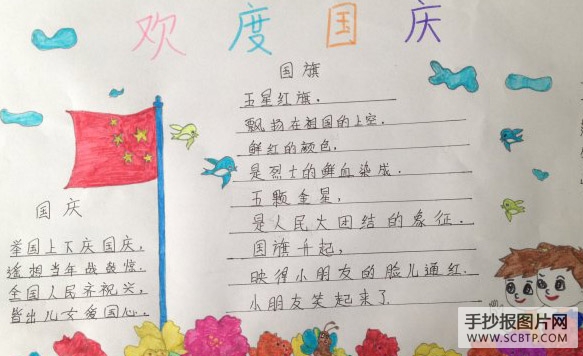 欢度国庆
国旗
五星红旗，
飘扬在祖国的上空。
鲜红的颜色，
是烈士的鲜血染成。
五颗金星，
是人民大团结的象征。
国旗升起，
映得小朋友的脸儿通红。
小朋友笑起来了
国庆
举国上下庆国庆，
遥相当年战鼓惊。
全国人民齐祝兴，
皆出儿女爱国心。
手抄报图片网
WWW.SCBTP.COM